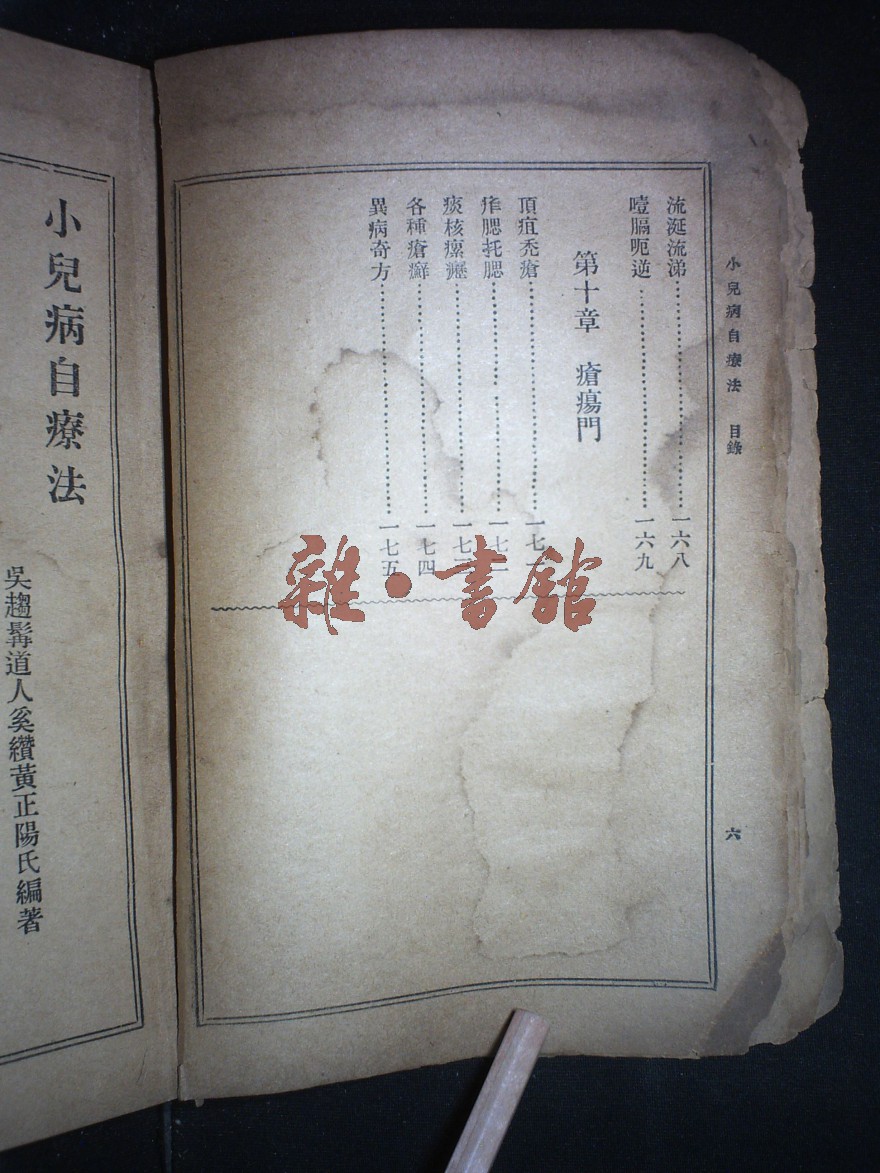 小兒病自療法　目錄
六
流涎流涕…………一六八
噎膈呃逆…………一六九
第十章　瘡瘍門
頂疽禿瘡…………一七
痄腮托腮…………一七
痰核瘰癧…………一七
各種瘡癬…………一七四
異病奇方…………一七五
雜·書館
小兒病自療法
吳趨髯道人奚纘黃正陽氏編著